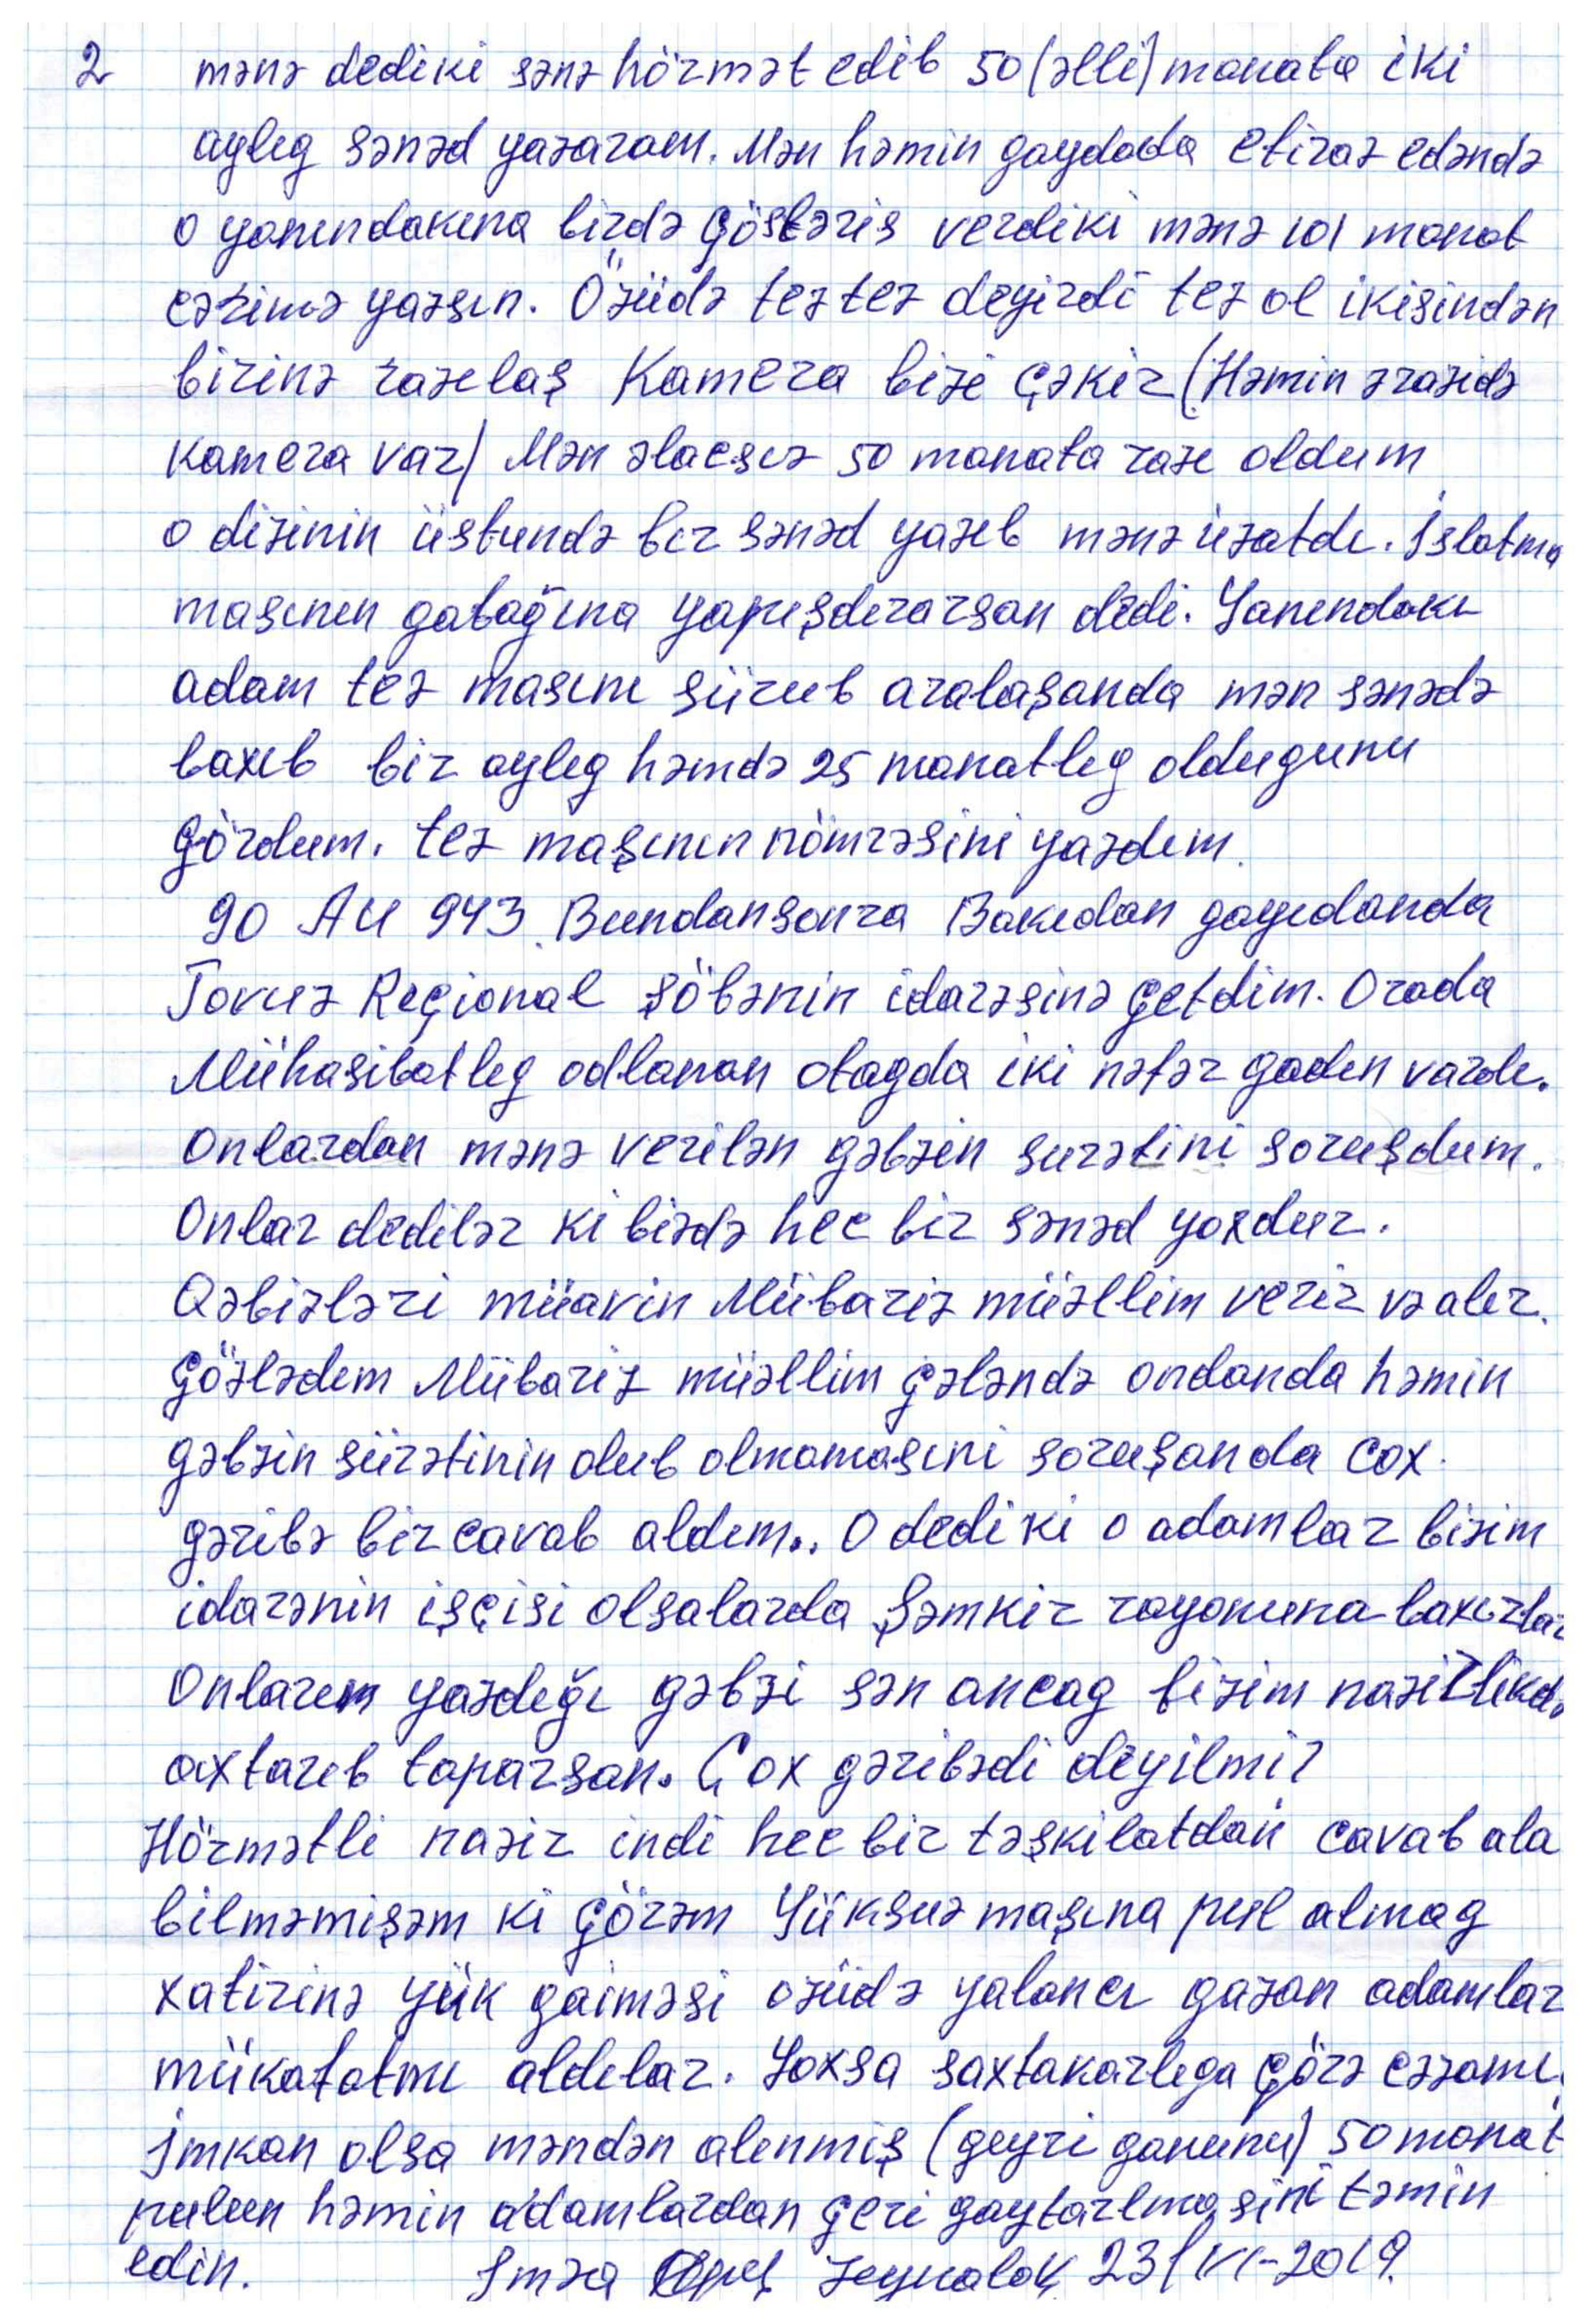 2 mənə dediki sənə hörmət edib 50 (əlli) manata iki
aylıg sənəd yazaram. Mən həmin gaydada etiraz edəndə
o yanındakına birdə göstəris verdiki mənə 101 manat
cərimə yazsın. Özüdə teztez deyirdi tez ol ikisindən
birinə razılaş Kamera bizi çəkir (Həmin ərazidə
kamera var) Mən əlacsız 50 manata razı oldum
o dizinin üstundə bir sənəd yazıb mənə uzatdı. İslatma
masının gabağına yapışdırarsan dedi. Yanındakı
adam tez masını sürub aralaşanda mən sənədə
baxıb bir aylıg həmdə 25 manatlıg oldugunu
gördum. tez maşının nömrəsini yazdım.
90 AU 943. Bundansonra Bakıdan gayıdanda
Tovuz Regional şöbənin idarəsinə getdim. Orada
Mühasibatlıg adlanan otagda iki nəfər gadın vardı.
Onlardan mənə verilən gəbzin surətini soruşdum.
Onlar dedilər ki bizdə hec bir sənəd yoxdur.
Qəbizləri müavin Mübariz müəllim verir və alır.
Gözlədım Mübariz müəllim gələndə ondanda həmin
gəbzin sürətinin olub olmamasıni soruşanda cox
gəribə bir cavab aldım.. O dedi ki o adamlar bizim
idarənin işçisi olsalarda Şəmkir rayonuna baxırlar
Onların yazdığı gəbzi sən ancag bizim nazirlikdə
axtarıb taparsan. Çox gəribədi deyilmi?
Hörmətli nazir indi hec bir təşkilatdan cavab ala
bilməmişəm ki görəm Yüksuz maşına pul almag
xatirinə yük gaiməsi özüdə yalancı yazan adamlar
mükafatmı aldılar. Yoxsa saxtakarlıga görə cəzamı.
İmkan olsa məndən alınmış (geyri ganunu) 50 manat
pulun həmin adamlardan geri gaytarlmasini təmin
edin. İmza 23/VI-2019.